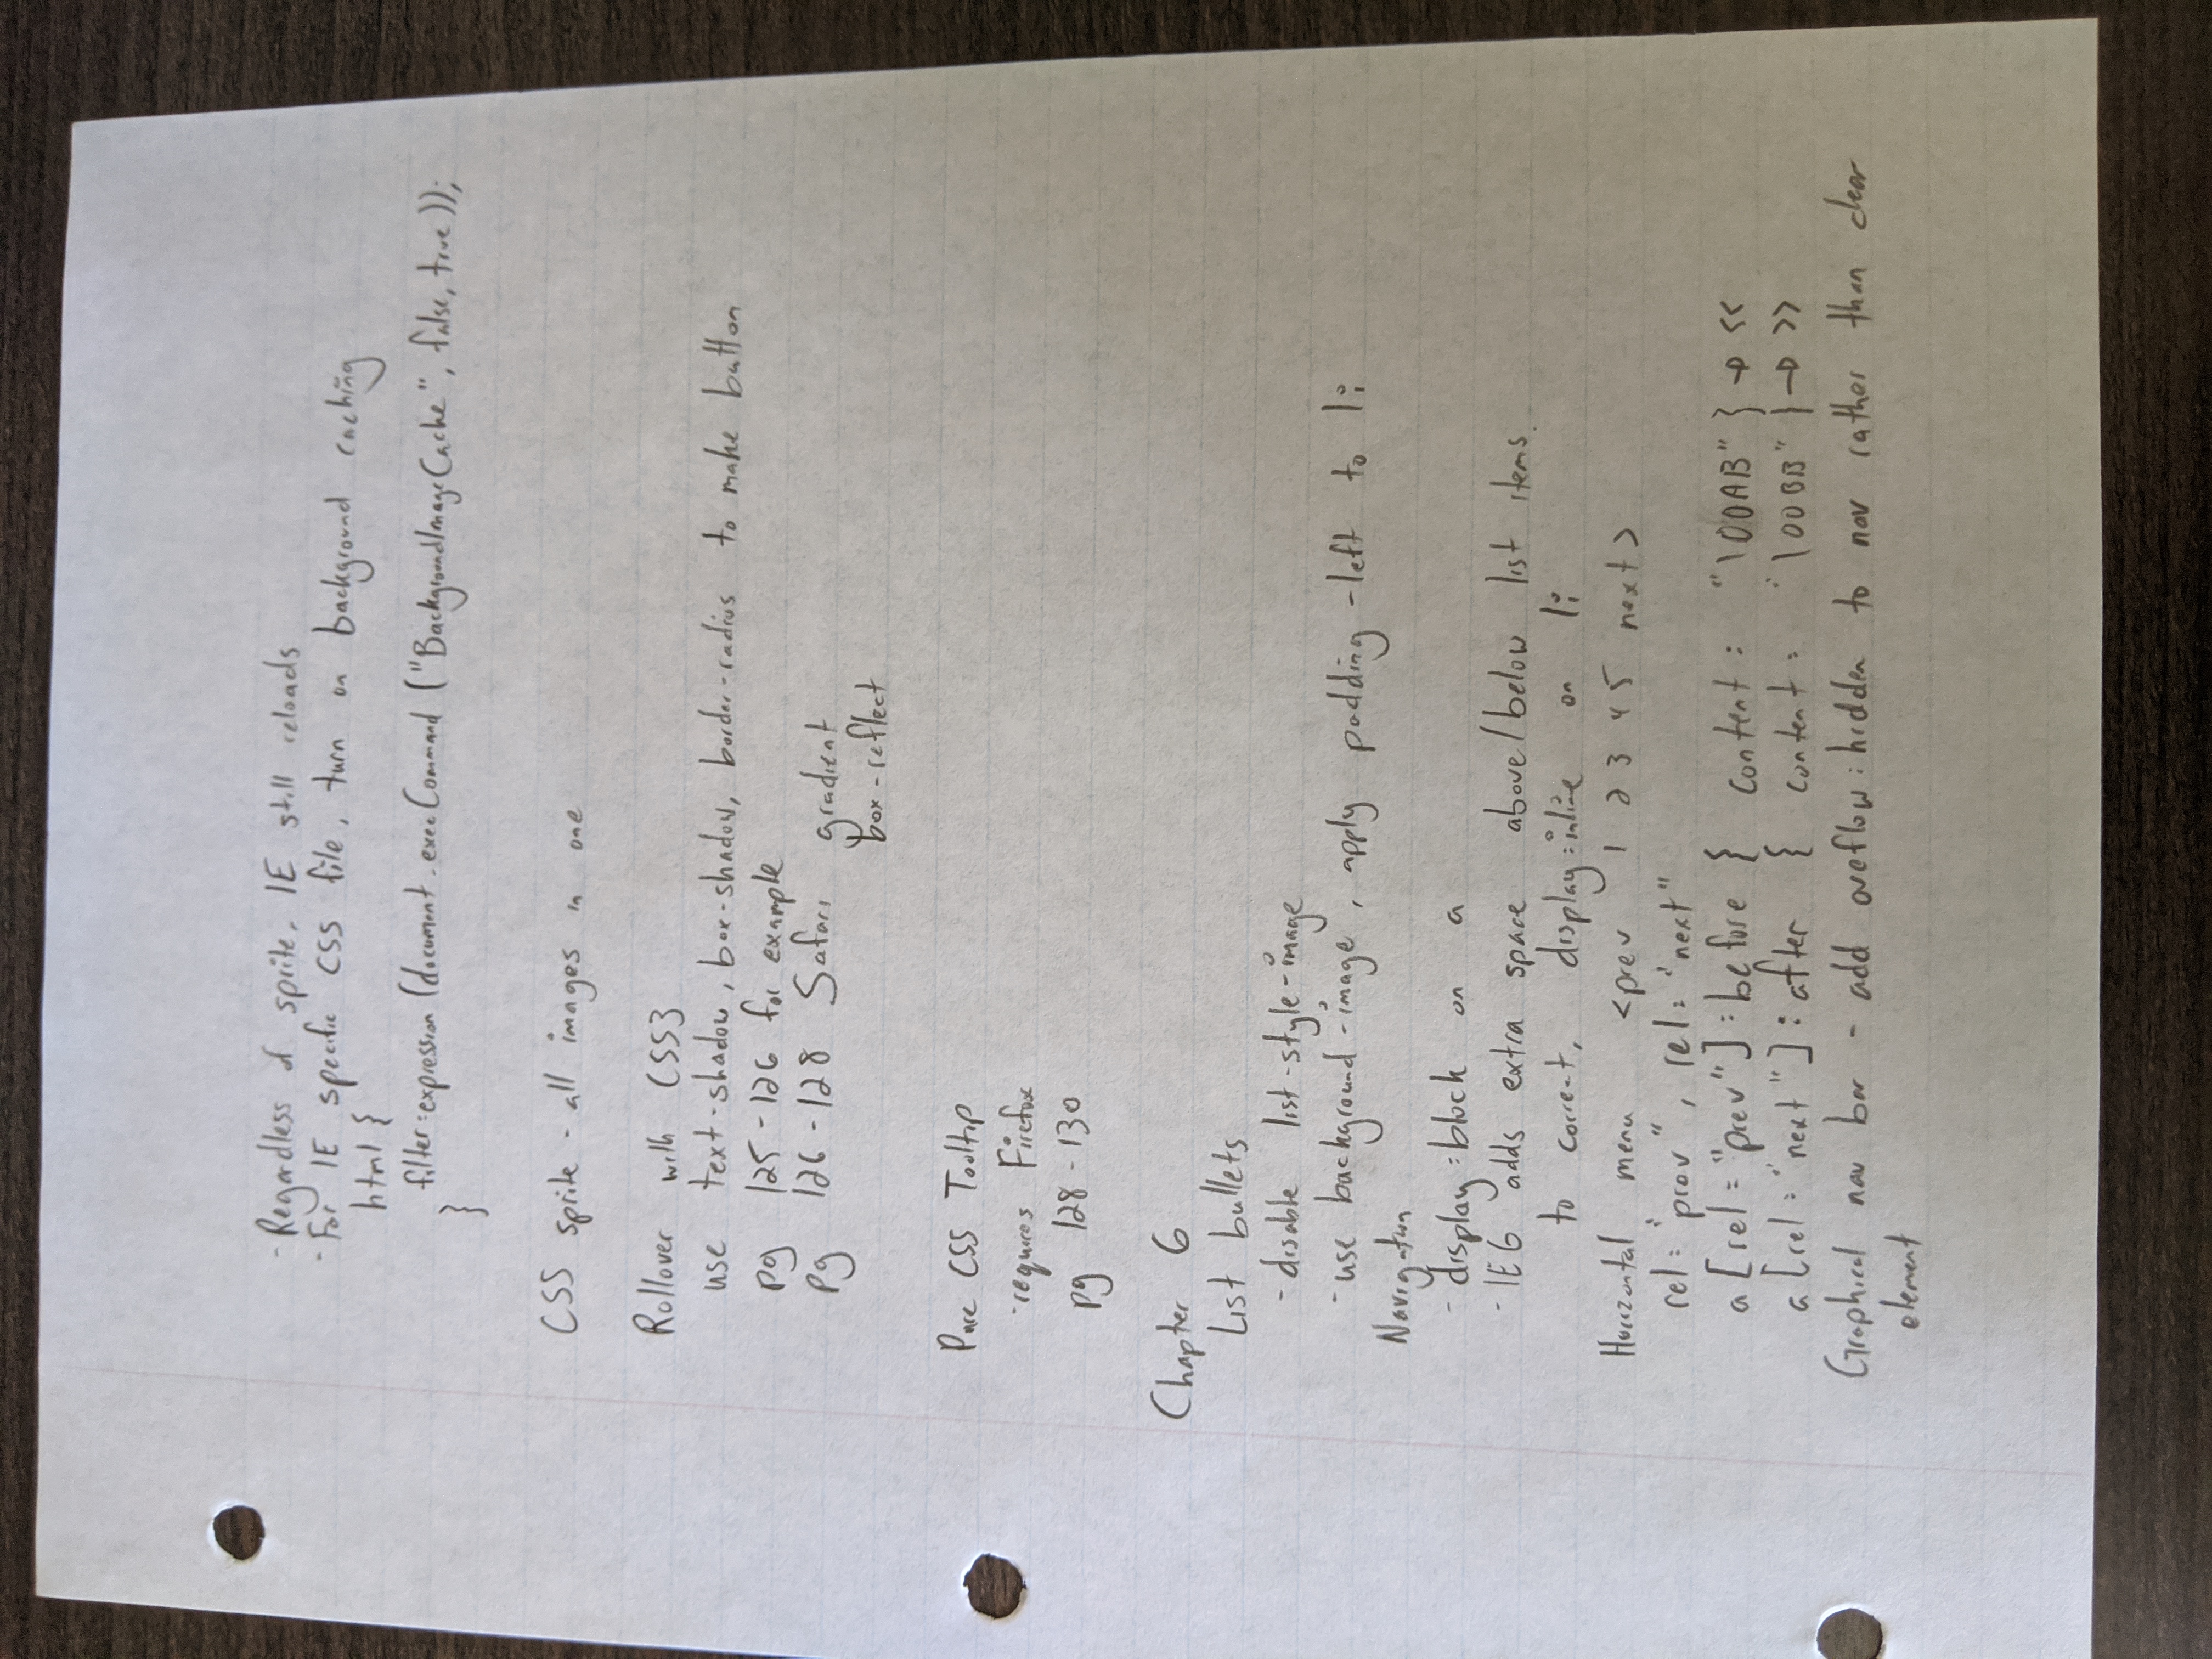 - Regardless of sprite, IE still reloads
- For IE specific CSS file, turn on background caching
html {
filter:expression (document.execCommand ("BackgroundImageCache", false, true));
}
CSS sprite - all images in one
Rollover with CSS3
use text-shadow, box-shadow, border-radius to make button
pg 125-126 for example
pg 126-128 Safari gradient
box-reflect
Pure CSS Tooltip
- requires Firefox
pg 128-130
Chapter 6
List bullets
- disable list-style-image
- use background-image, apply padding-left to li
Navigation
- display:block on a
- IE6 adds extra space above/below list items.
to correct, display:inline on li
Horizontal menu <prev 1 2 3 4 5 next>
rel="prev", rel="next"
a[rel="prev"]:before { content: "\00AB" } → <<
a[rel="next"]:after { content: "\00BB" } → >>
Graphical nav bar - add oveflow:hidden to nav rather than clear
element